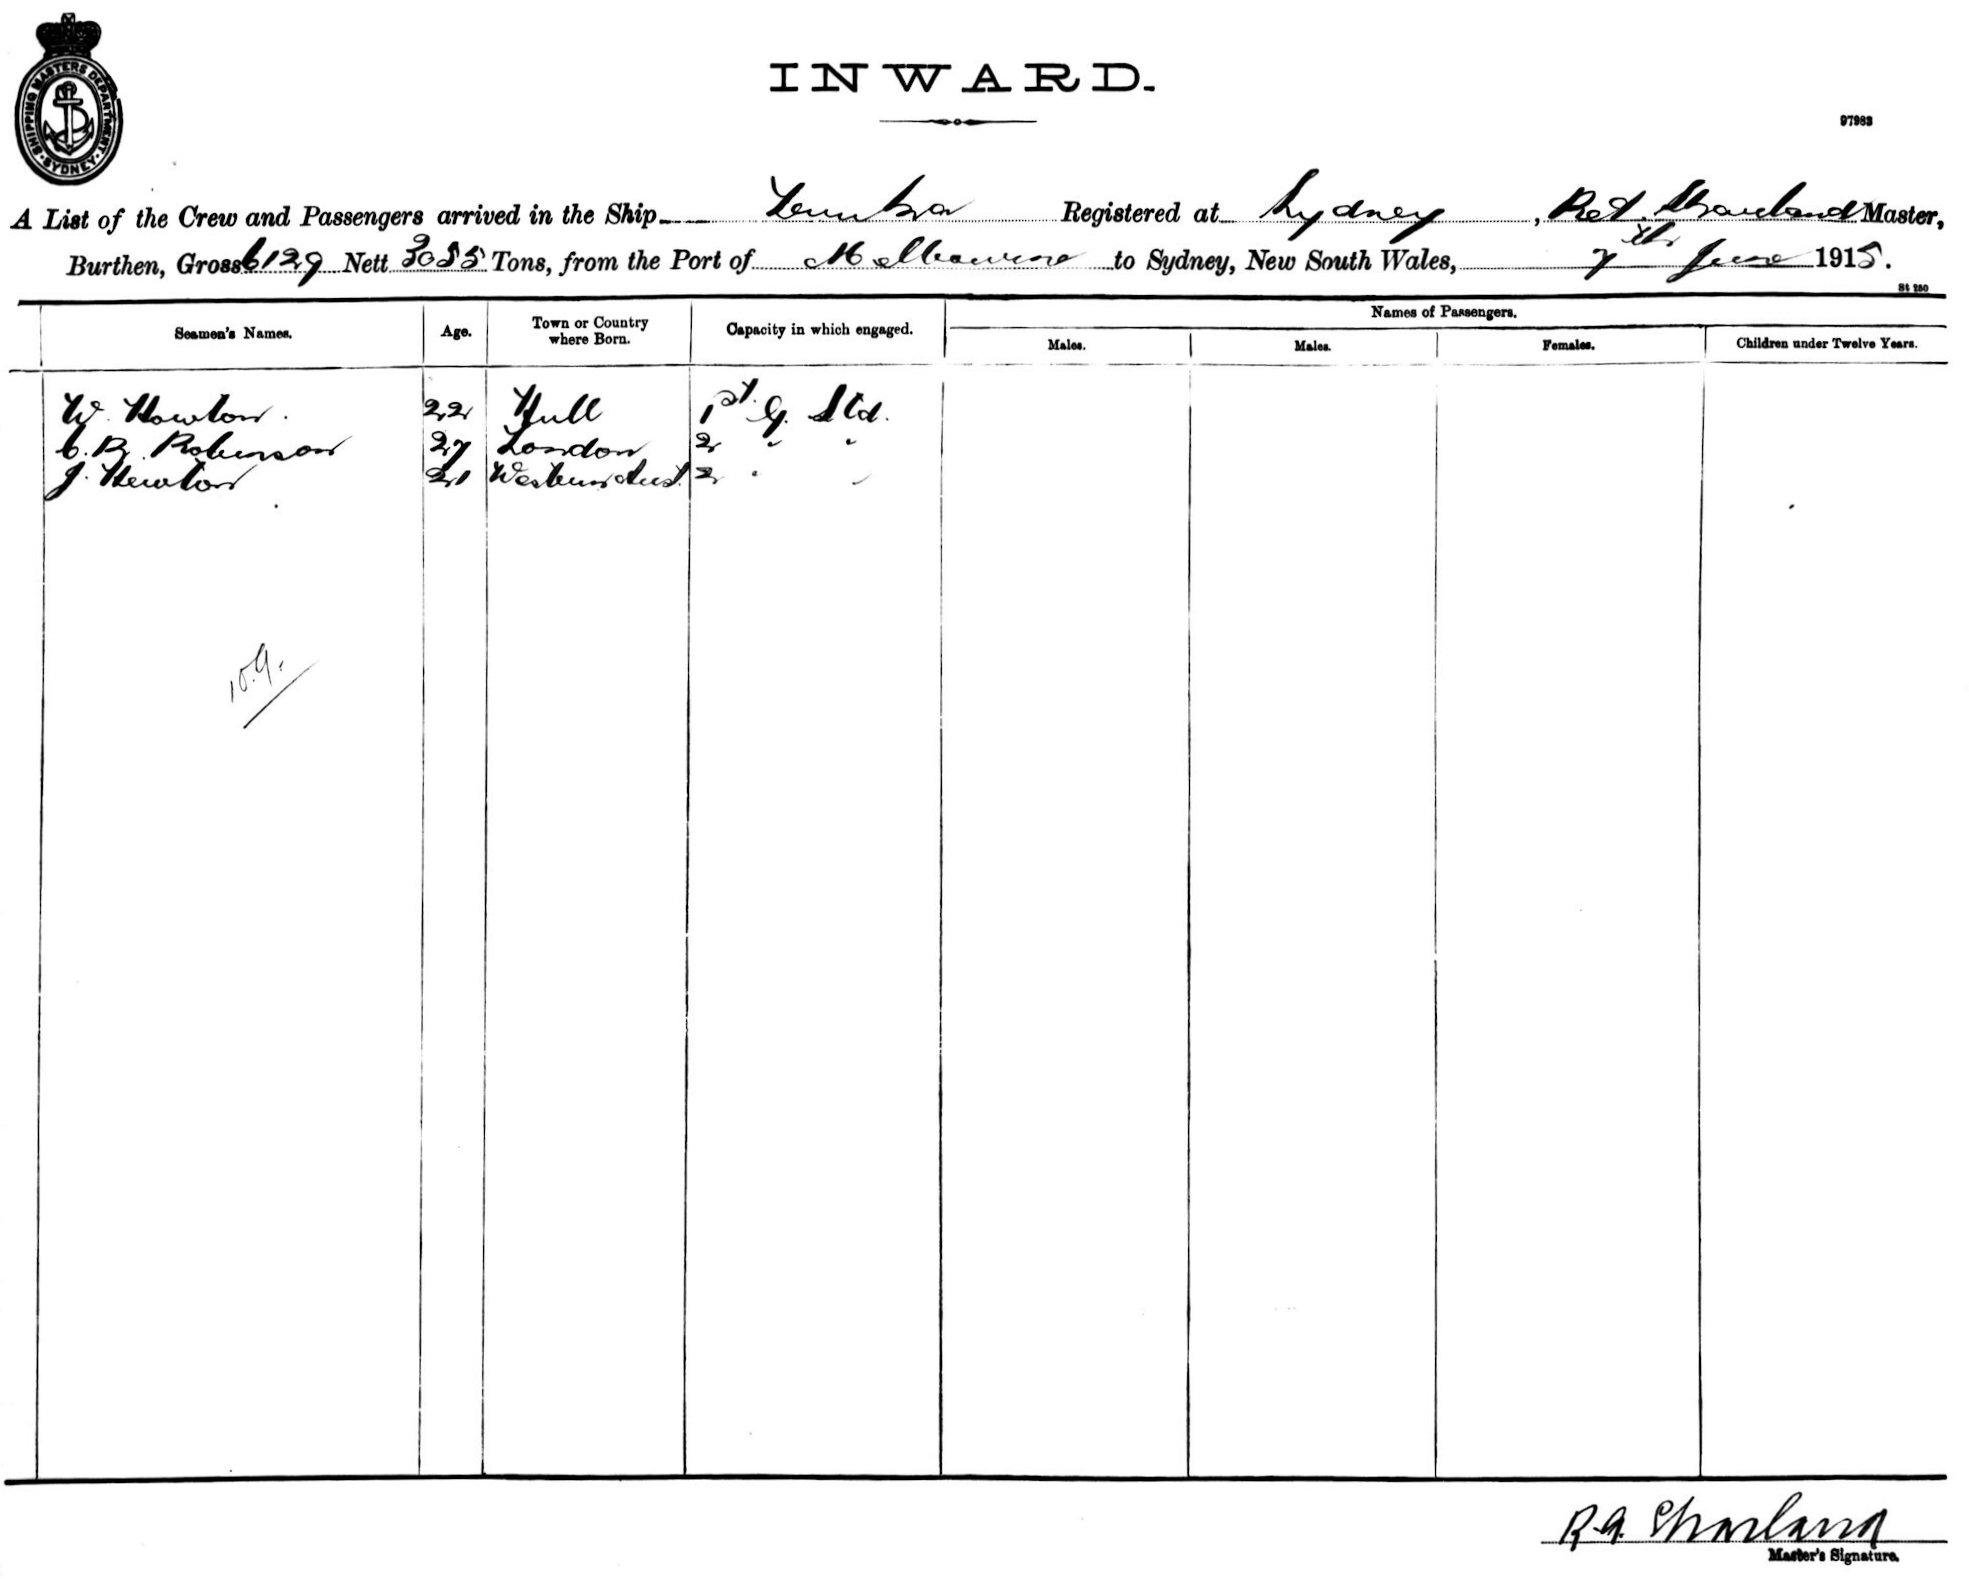 SHIPPING MASTERS DEPARTMENT
SYDNEY
INWARD.
97983
A List of the Crew and Passengers arrived in the Ship Registered at Sydney, Master,
Burthen, Gross 6129 Nett 3055 Tons, from the Port of Melbourne to Sydney, New South Wales, 7th June 1915.
St 280
Seamen's Names. Age. Town or Country where Born. Capacity in which engaged. Names of Passengers.
Males. Males. Females. Children under Twelve Years.
W. Howton. 22 Hull 1st G. Std.
C. B. Robinson 27 London 2 " "
J. Newton 21 Western Aust. 2 " "
109.
R.A.
Master's Signature.